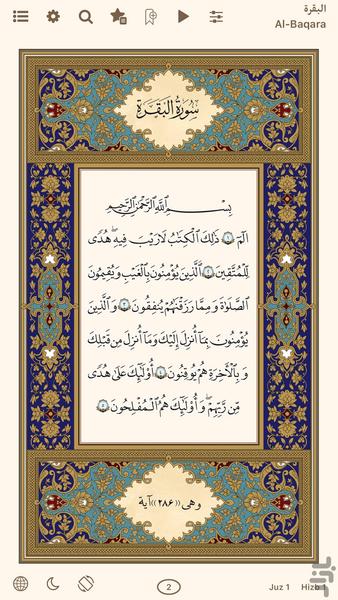 البقرة
Al-Baqara
سُورَةُ الْبَقَرَةِ
بِسْمِ اللَّهِ الرَّحْمَٰنِ الرَّحِيمِ
الٓمٓ ۝١ ذَٰلِكَ الْكِتَابُ لَا رَيْبَ فِيهِ هُدًى
لِلْمُتَّقِينَ ۝٢ الَّذِينَ يُؤْمِنُونَ بِالْغَيْبِ وَيُقِيمُونَ
الصَّلَاةَ وَمِمَّا رَزَقْنَاهُمْ يُنْفِقُونَ ۝٣ وَالَّذِينَ
يُؤْمِنُونَ بِمَا أُنْزِلَ إِلَيْكَ وَمَا أُنْزِلَ مِنْ قَبْلِكَ
وَبِالْآخِرَةِ هُمْ يُوقِنُونَ ۝٤ أُولَٰئِكَ عَلَىٰ هُدًى
مِنْ رَبِّهِمْ وَأُولَٰئِكَ هُمُ الْمُفْلِحُونَ ۝٥
وهی ((۲۸۶)) آية
2
Juz 1
Hizb 1
بازار